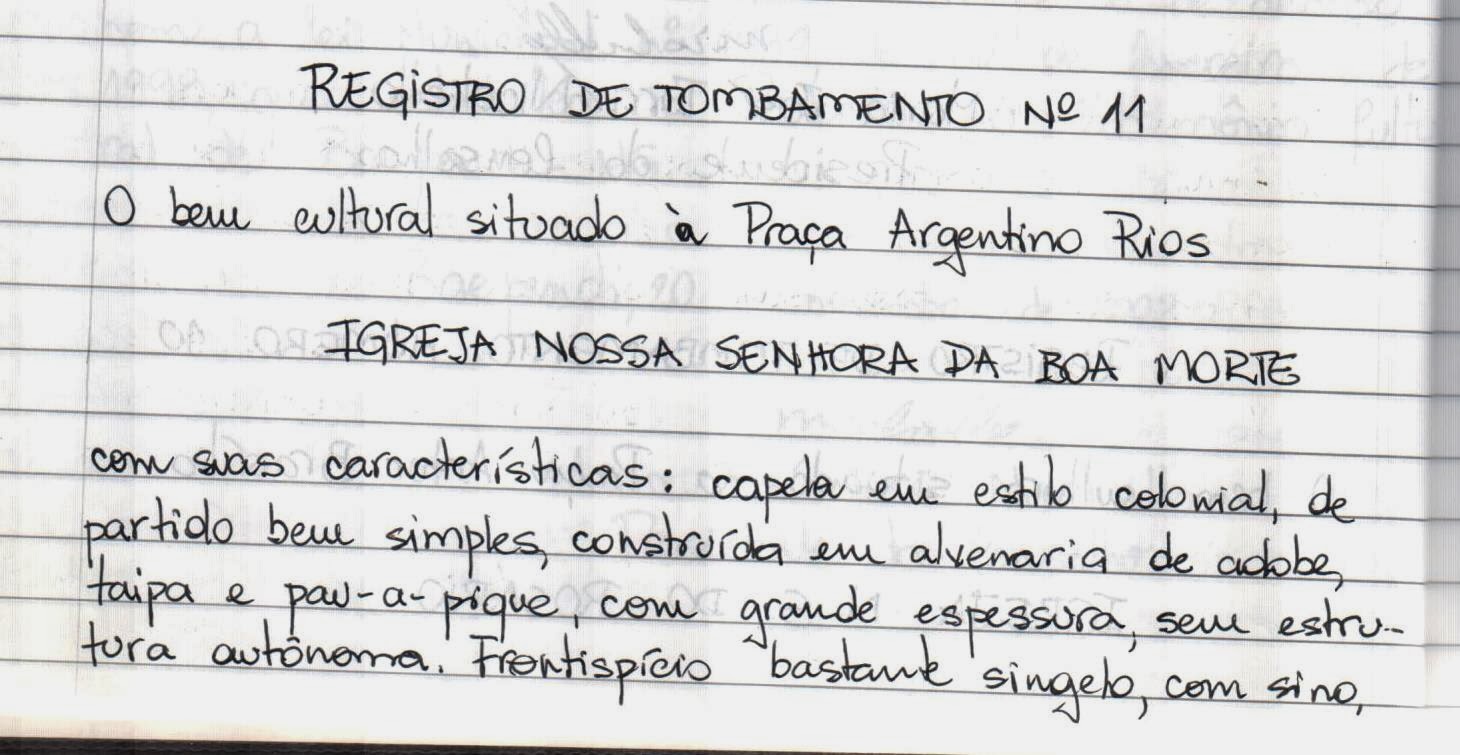 REGISTRO DE TOMBAMENTO Nº 11
O bem cultural situado à Praça Argentino Rios
IGREJA NOSSA SENHORA DA BOA MORTE
com suas características: capela em estilo colonial, de
partido bem simples, construída em alvenaria de adobe,
taipa e pau-a-pique, com grande espessura, sem estru-
tura autônoma. Frontispício bastante singelo, com sino,